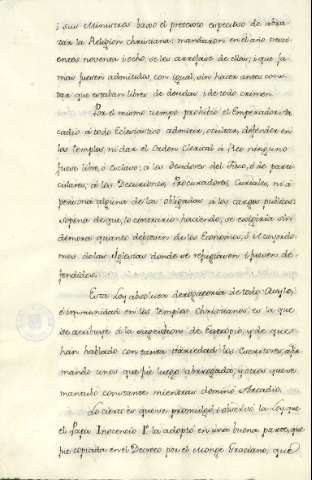 i sus Ministros baxo el pretexto especioso de abra
zar la Religion christiana: mandaron en el año treci
entos noventa i ocho, se les arrojase de ellas; i que ja
mas fuesen admitidos con igual, sin hacer antes cons
tar que estaban libres de deudas i de todo crimen.
Por el mismo tiempo prohibió el Emperador Ar
cadio à todo Eclesiastico admitir, ocultar, defender en
los templos, ni dar el Orden Clerical á Reo ninguno
fuese libre, ó esclavo: a los Deudores del Fisco, ó de parti
culares, à los Decuriones, Procuradores, Curiales, ni à
persona alguna de las obligadas à los cargos publicos
so pena de que, lo contrario haciendo, se exigiria sin
demora quanto debiesen de los Economos, ó
de las Iglesias donde se refugiasen i fuesen de
fendidos.
Esta Ley absoluta derogatoria de todo Asylo,
è inmunidad en los templos Christianos, es la que
se atribuye à la sugestion de Eutropio, y de que
han hablado con tanta variedad los Escritores, afir
mando unos que fue luego abrogada, y otros que se
mantubo constante mientras dominó Arcadio.
Lo cierto es que se promulgó, i observó la Ley, que
el Papa Inocencio I.º la adoptó en una buena parte, que
fue copiada en el Decreto por el Monge Graciano, que